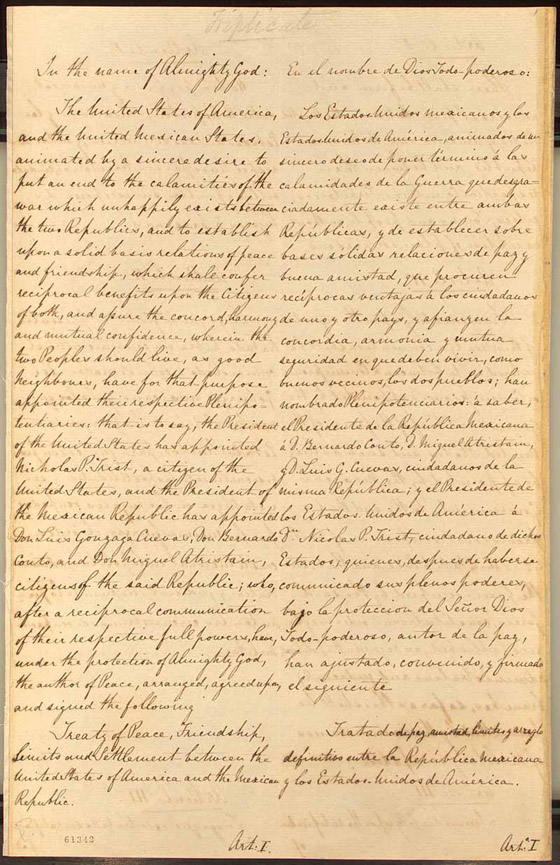 Triplicate
In the name of Almighty God:
The United States of America,
and the United Mexican States,
animated by a sincere desire to
put an end to the calamities of the
war which unhappily exists between
the two Republics, and to establish
upon a solid basis relations of peace
and friendship, which shall confer
reciprocal benefits upon the Citizens
of both, and assure the concord, harmony
and mutual confidence, wherein the
two Peoples should live, as good
Neighbours, have for that purpose
appointed their respective Plenipo-
tentiaries: that is to say, the President
of the United States has appointed
Nicholas P. Trist, a citizen of the
United States, and the President of
the Mexican Republic has appointed
Don Luis Gonzaga Cuevas, Don Bernardo
Couto, and Don Miguel Atristain,
citizens of the said Republic; who,
after a reciprocal communication
of their respective full powers, have,
under the protection of Almighty God,
the author of Peace, arranged, agreed upon,
and signed the following
Treaty of Peace, Friendship,
Limits and Settlement between the
United States of America and the Mexican
Republic.
61342
Art: I.
En el nombre de Dios Todo-poderoso:
Los Estados Unidos mexicanos y los
Estados Unidos de América, animados de un
sincero deseo de poner término á las
calamidades de la Guerra que desgra-
ciadamente existe entre ambas
Repúblicas, y de establecer sobre
bases sólidas relaciones de paz y
buena amistad, que procuren
recíprocas ventajas á los ciudadanos
de uno y otro pays, y afianzen la
concordia, armonía y mutua
seguridad en que deben vivir, como
buenos vecinos, los dos pueblos; han
nombrado Plenipotenciarios: á saber,
el Presidente de la República Mexicana
á D. Bernardo Couto, D. Miguel Atristain,
y D. Luis G. Cuevas, ciudadanos de la
misma República; y el Presidente de
los Estados-Unidos de América á
Dn Nicolas P. Trist, ciudadano de dichos
Estados; quienes, despues de haberse
comunicado sus plenos poderes,
bajo la proteccion del Señor Dios
Todo-poderoso, autor de la paz,
han ajustado, convenido, y firmado
el siguiente
Tratado de paz, amistad, límites y arreglo
definitivo entre la República Mexicana
y los Estados-Unidos de América.
Art:º I